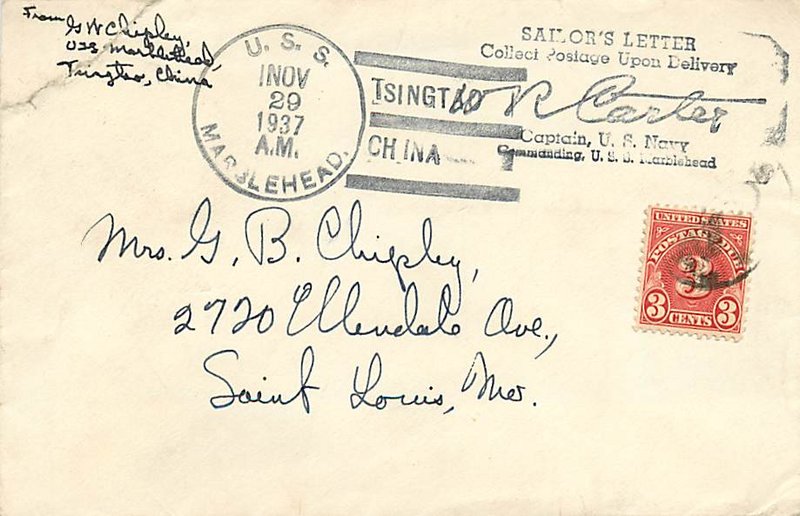 From G W Chipley,
USS Marblehead,
Tsingtao, China
U. S. S.
NOV
29
1937
A.M.
MARBLEHEAD.
TSINGTAO
CHINA
SAILOR'S LETTER
Collect Postage Upon Delivery
W R Carter
Captain, U. S. Navy
Commanding, U. S. S. Marblehead
Mrs. G. B. Chipley,
2720 Ellendale Ave.,
Saint Louis, Mo.
UNITED STATES
POSTAGE DUE
3
3 CENTS 3